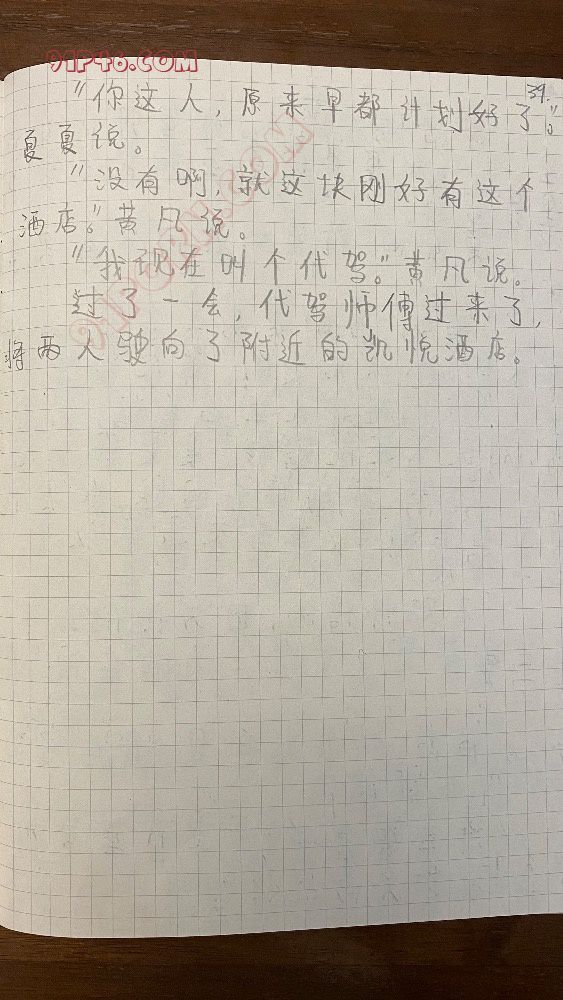 91P46.COM
39.
"你这人，原来早都计划好了。"
夏夏说。
"没有啊，就这块刚好有这个
酒店。"黄凡说。
"我现在叫个代驾。"黄凡说。
过了一会，代驾师傅过来了，
将两人驶向了附近的凯悦酒店。